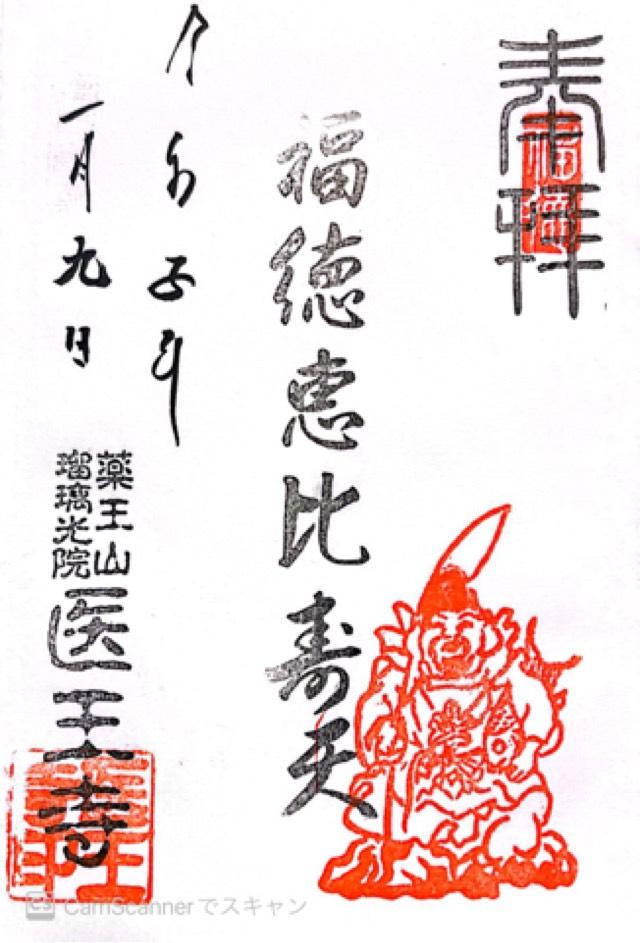 奉拝
福徳
福徳恵比寿天
令和五年
一月九日
薬王山
瑠璃光院
医王寺
CS CamScannerでスキャン